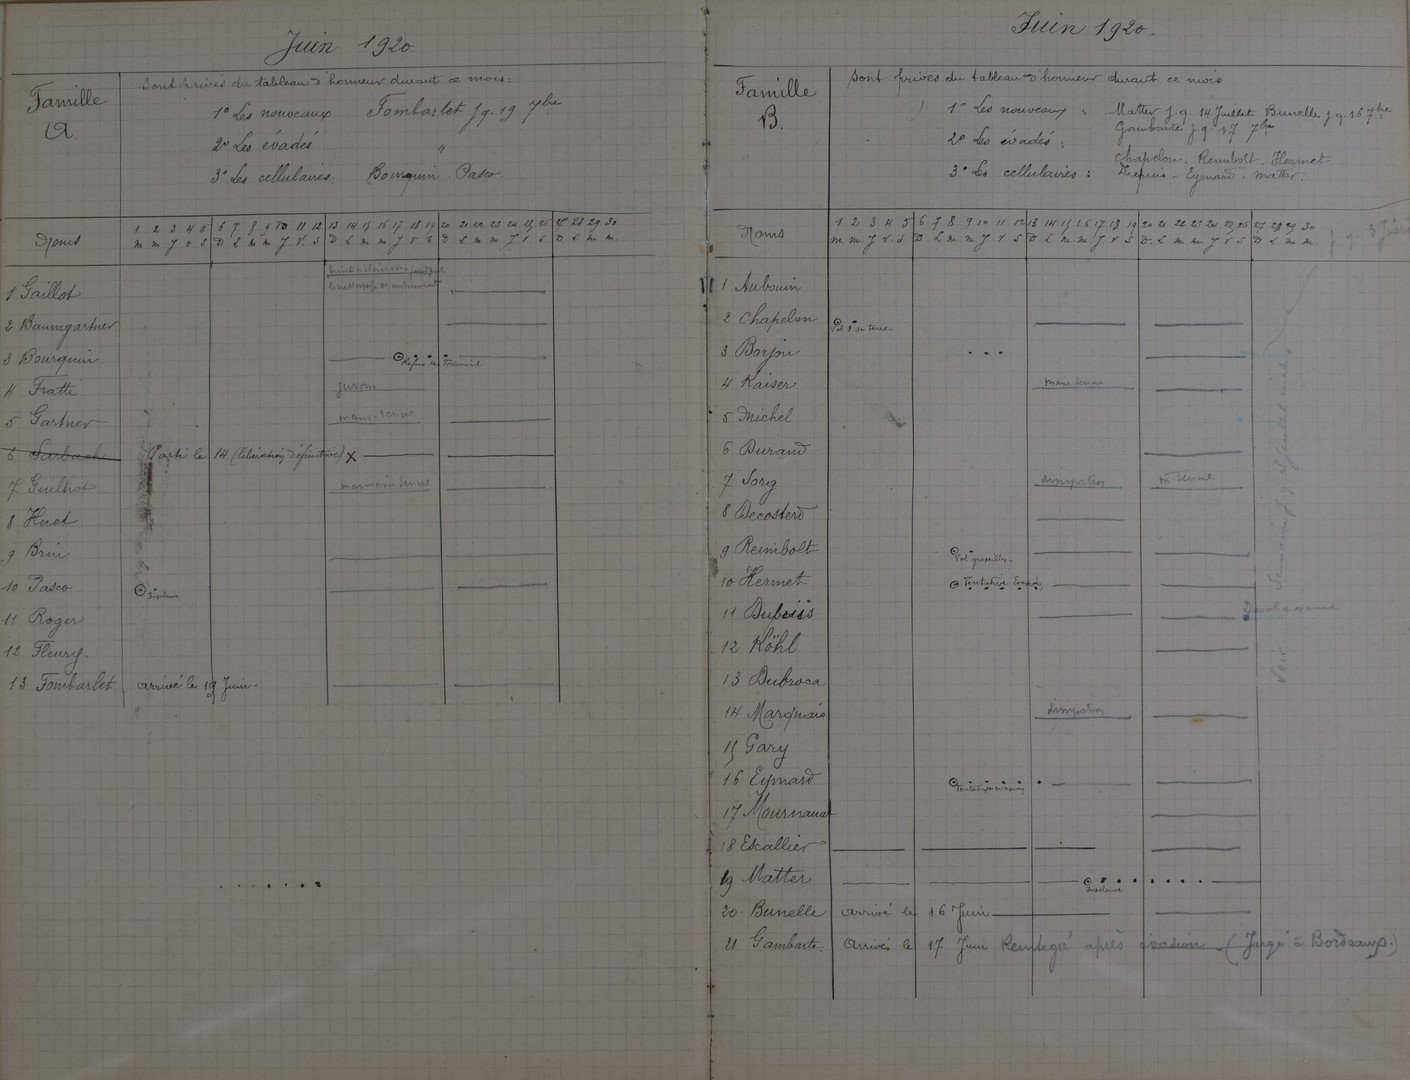 Juin 1920
Famille
A.
Sont privés du tableau d'honneur durant ce mois:
1° Les nouveaux Tombarlet jq. 19 7bre
2° Les évadés "
3° Les cellulaires: Bourquin Pasco
Noms
1 2 3 4 5 6 7 8 9 10 11 12 13 14 15 16 17 18 19 20 21 22 23 24 25 26 27 28 29 30
m m J v S D L m m J V S D L m m J v S D L m m J V S D L m m
1 Gaillot
2 Baumgartner
3 Bourquin Refus de travail
4 Fratti jurons
5 Gartner mauv. tenue
6 Sarbach Parti le 14 (libération définitive) x
7 Guilhot mauvaise tenue
8 Huet
9 Brin
10 Pasco Insolence
11 Roger
12 Fleury.
13 Tombarlet arrivé le 19 Juin.
Juin 1920.
Famille
B.
Sont privés du tableau d'honneur durant ce mois
1° Les nouveaux : Matter jq. 14 Juillet Bunelle jq. 16 7bre
Gambarte jq 17 7bre
2° Les évadés :
Chapelon. Reimbolt. Hermet
3° Les cellulaires : Eymard. Matter.
Noms
1 2 3 4 5 6 7 8 9 10 11 12 13 14 15 16 17 18 19 20 21 22 23 24 25 26 27 28 29 30
m. m. J v. S D L m m J v S D L m m J v S D. L m m J v S D L m m
1 Aubouin
2 Chapelon
3 Borjon
4 Kaiser mauv tenue
5 Michel
6 Durand
7 Sorg dissipation m. tenue
8 Decosterd
9 Reimbolt Vol groseilles.
10 Hermet Tentative Evasion
11 Dubois
12 Köhl
13 Dubroca
14 Marquais dissipation
15 Gary
16 Eymard Tentative évasion
17 Mournaud
18 Escallier
19 Matter Insolence
20 Bunelle arrivé le 16 Juin
21 Gambarte. Arrivé le 17 Juin Réintégré après évasion. (Jugé à Bordeaux.)